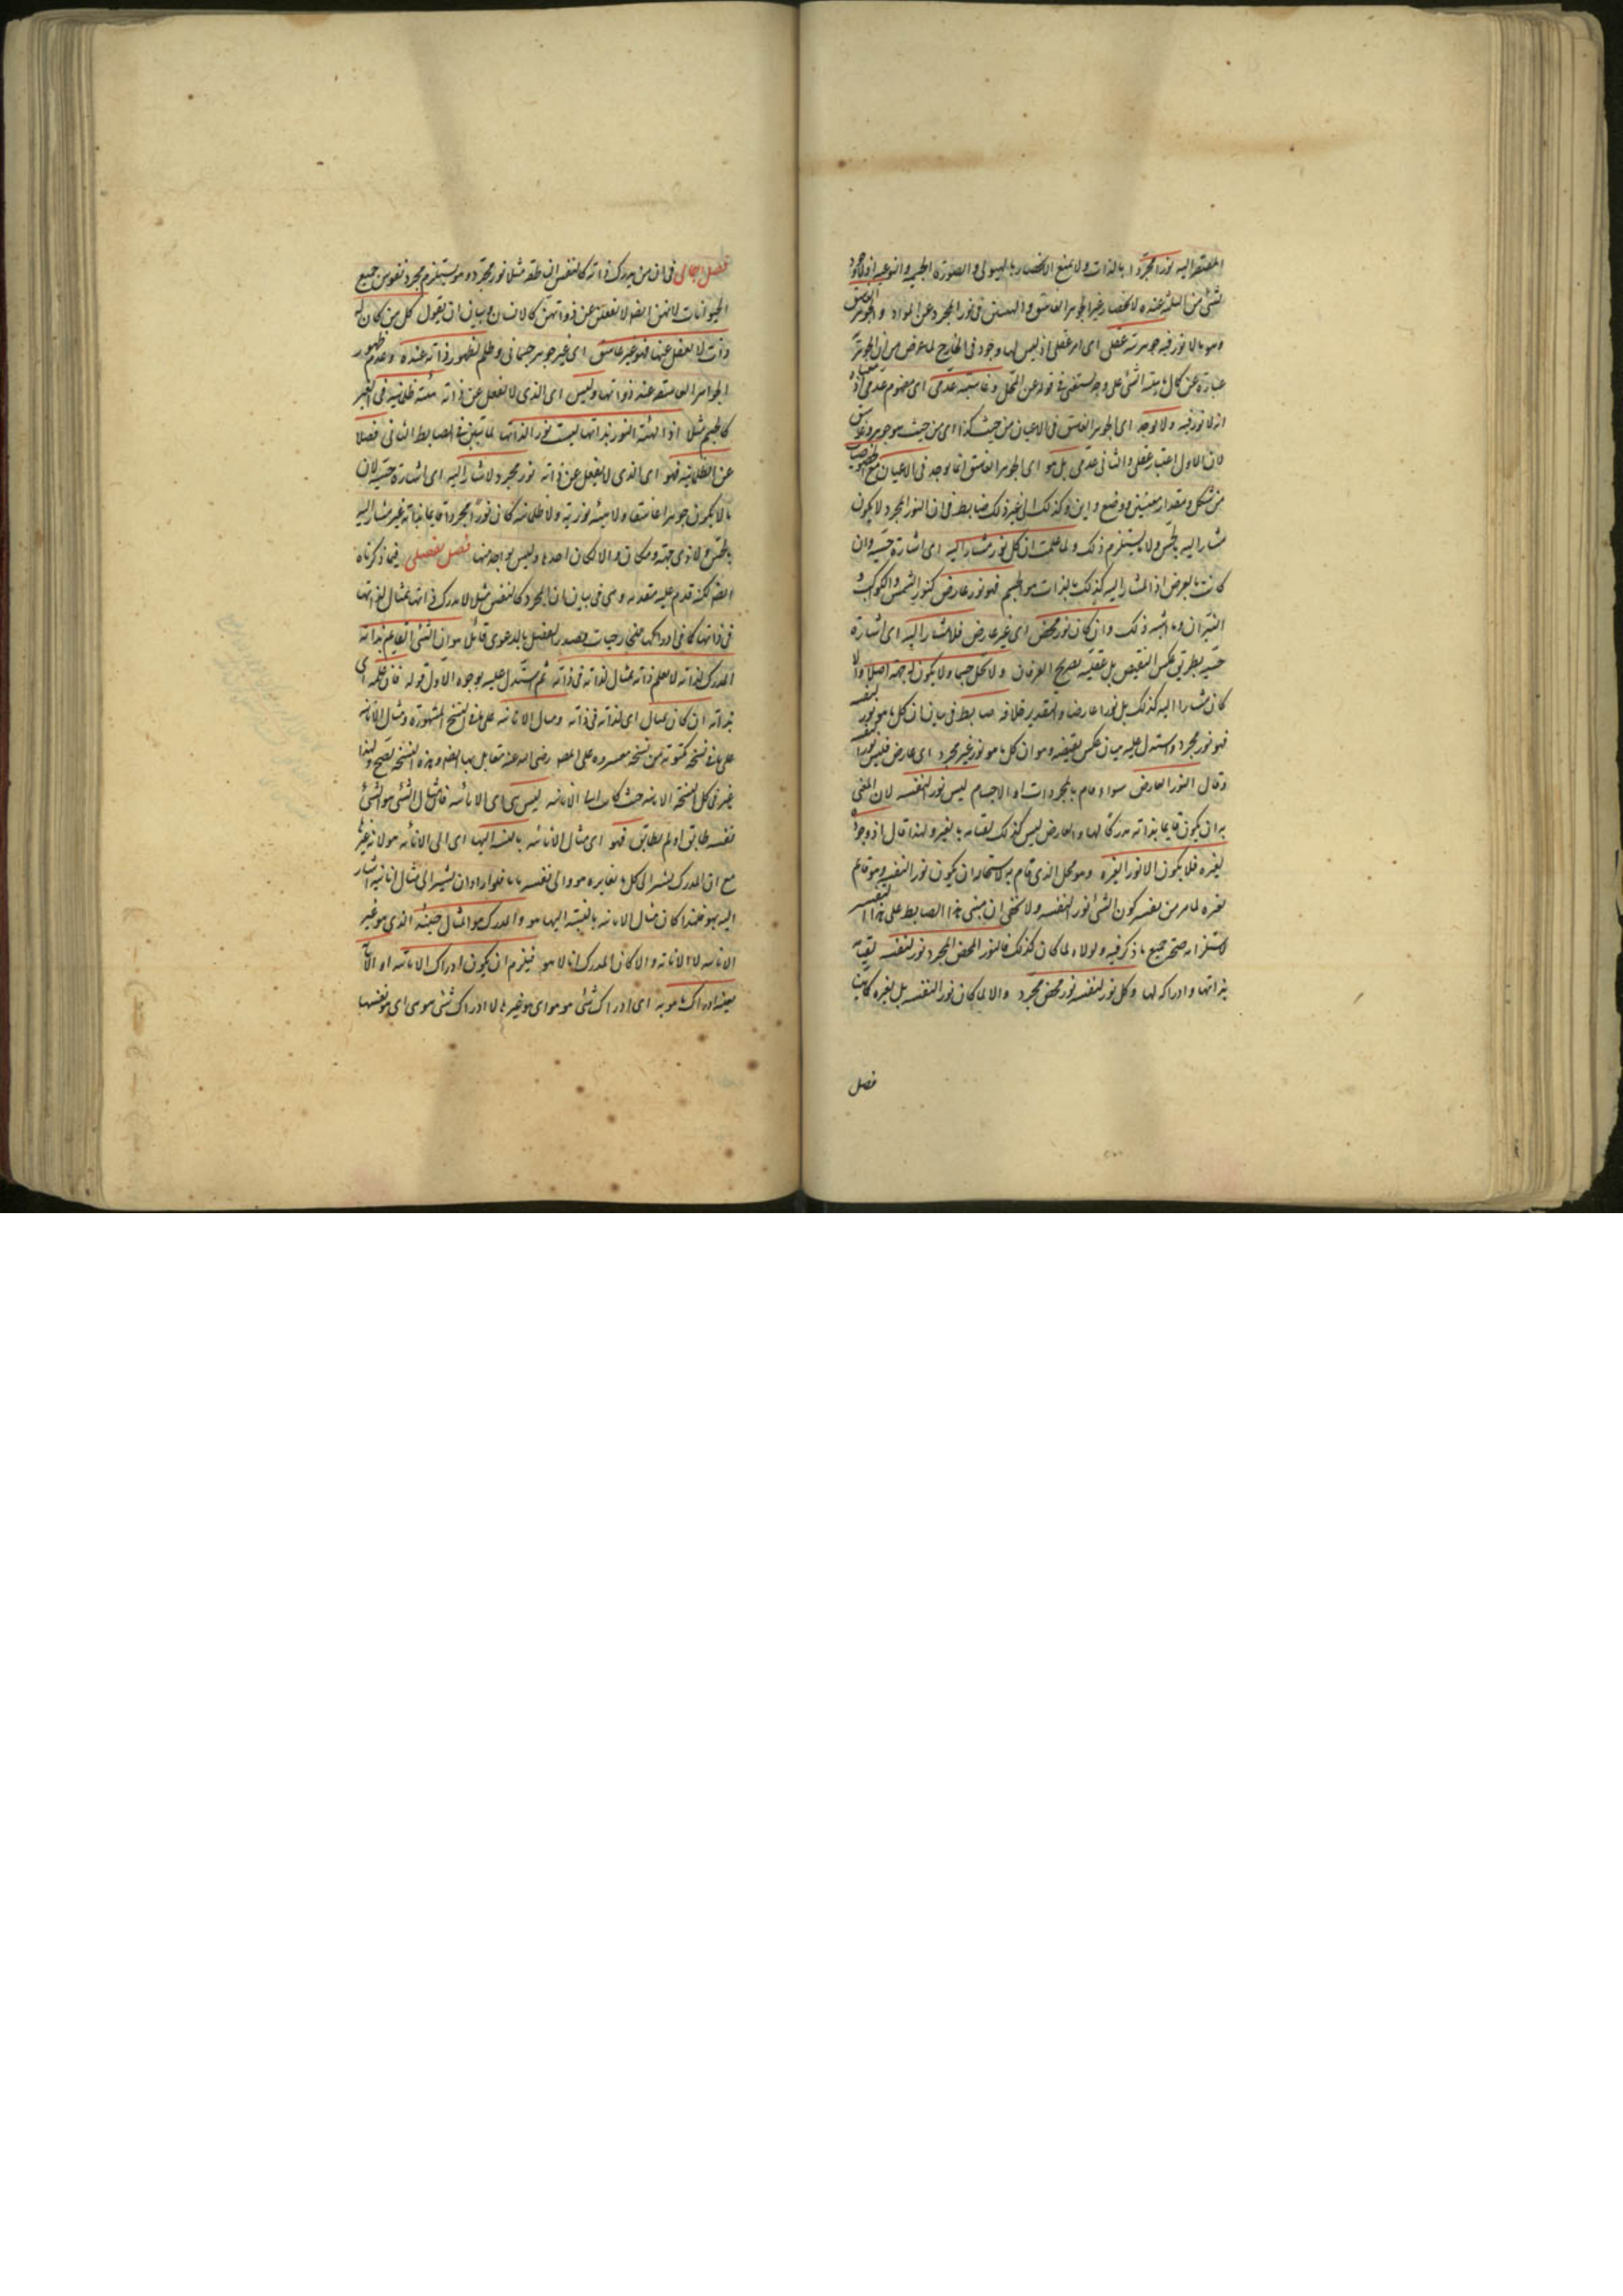 المفتقر اليه نورا مجردا بالذات ولا يمنع الانحصار بالهيولى والصورة الجسمية والنوعية اذ لا وجود
لشئ من الثلثة عنده لانحصار غير الجوهر الغاسق والهيئتين في نور المجرد عن المواد والجوهر الغاسق
وهو ما لا نور فيه جوهريته عقلي اى امر عقلي اذ ليس لها وجود في الخارج لما عرفت من ان الجوهرية
عبارة عن كمال ماهية الشئ على وجه يستغنى في قوامه عن المحل وغاسقيته عدمي اى مفهوم عدمي اذ معناه
انه لا نور فيه ولا يوجد اى الجوهر الغاسق في الاعيان من حيث كذا اى من حيث هو جوهر وغاسق
لان الاول اعتبار عقلي والثاني عدمي بل هو اى الجوهر الغاسق انما يوجد في الاعيان مع الخصوصيات
من شكل ومقدار معينين ووضع واين وكذلك الى غير ذلك ضابط في ان النور المجرد لا يكون
مشارا اليه بالحس ولا ما يستلزم ذلك ولما علمت ان كل نور مشار اليه اى اشارة حسية وان
كانت بالعرض اذ المشار اليه كذلك بالذات هو الجسم فهو نور عارض كنور الشمس والكواكب و
النيران وما اشبه ذلك وان كان نور محض اى غير عارض فلا مشار اليه اى اشارة
حسية بطريق عكس النقيض بل عقلية بصريح العرفان ولا يحل جسما ولا يكون له جهة اصلا والا
كان مشارا اليه كذلك بل نورا عارضا والتقدير خلافه ضابط في بيان ان كل ما هو نور لنفسه
فهو نور مجرد واستدل عليه ببيان عكس نقيضه وهو ان كل ما هو نور غير مجرد اى عارض فليس نورا لنفسه
وقال النور العارض سواء قام بالمجردات او الاجسام ليس نورا لنفسه لان المعنى
به ان يكون قايما بذاته مدركا لها والعارض ليس كذلك لقيامه بالغير ولهذا قال اذ وجوده
لغيره فلا يكون الا نورا لغيره وهو محل الذي قام به لاستحالة ان يكون نورا لنفسه وهو قائم
بغيره لما مر من تفسير كون الشئ نورا لنفسه ولا يخفى ان مبنى هذا الضابط على هذا التفسير
لاستلزامه صحة جميع ما ذكر فيه ولولاه لما كان كذلك فالنور المحض المجرد نور لنفسه لقيامه
بذاتها وادراكه لها وكل نور لنفسه نور محض مجرد والا لما كان نورا لنفسه بل لغيره كما بينا
فصل
فصل اجمالي في ان من يدرك ذاته كالنفس الناطقة مثلا نور مجرد وهو يستلزم تجرد نفوس جميع
الحيوانات لانهن ايضا لا يغفلن عن ذواتهن كالانسان وبيانه ان يقول كل من كان له
ذات لا يغفل عنها فهو غير غاسق اى غير جوهر جسماني وظلم لظهور ذاته عنده وعدم ظهور
الجواهر الغاسقة عند ذواتها وليس اى الذى لا يغفل عن ذاته هيئة ظلمانية في الغير
كالجسم مثلا اذ الهيئة النورية ايضا ليست نورا لذاتها لما تبين في الضابط الثاني فضلا
عن الظلمانية فهو اى الذى لا يغفل عن ذاته نور مجرد لا يشار اليه اى اشارة حسية لان
ما لا يكون جوهرا غاسقا ولا هيئة نورية ولا ظلمانية كان نورا مجردا قايما بذاته غير مشار اليه
بالحس ولا ذى جهة ومكان والا لكان احدها وليس بواحد منها فصل تفصيلي فيما ذكرناه
ايضا لكنه قدم عليه مقدمة وهى في بيان ان المجرد كالنفس مثلا لا يدرك ذاتها بمثال لذاتها
في ذاتها
المدرك لذاته لا يعلم ذاته بمثال لذاته في ذاته ثم استدل عليه بوجوه الاول قوله فان علمه اى
بذاته ان كان بمثال اى لذاته في ذاته ومثال الانانية على ما في النسخ المشهورة ومثال الانانية
على ما في نسخة مكتوبة من نسخة مقروءة على المصنف رضى الله عنه
غير في كل النسخة الانانية حيث كان ليس هى اى الانانية فان مثال الشئ هو الشئ
نفسه طابق او لم يطابق فهو اى مثال الانانية بالنسبة اليها اى الى الانانية هو لا نه غير
مع ان المدرك يشير الى كل ما يغايره بهو والى نفسه بانا فلو اراد ان يشير الى مثال انانيته اشار
اليه بهو فلهذا كان مثال الانانية بالنسبة اليها هو والمدرك هو المثال حينئذ الذى هو غير
الانانية لا الانانية والا كان المدرك انا لا هو فيلزم ان يكون ادراك الانانية
بعينه ادراك ما هو به اى ادراك شئ هو هو اى هو غيرها لا ادراك شئ هو هى اى هو نفسها